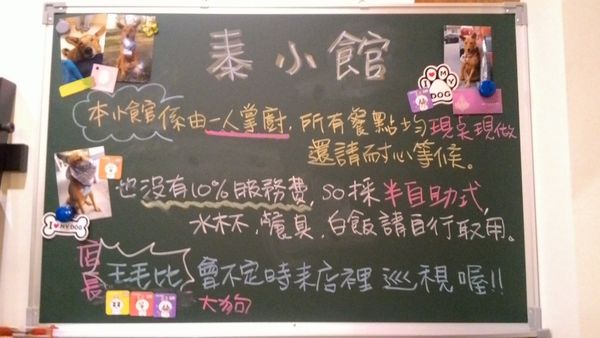 秦小館
I ❤ MY DOG
本小館係由一人掌廚,所有餐點均現桌現做
還請耐心等候。
也沒有10%服務費,so採半自助式,
水杯,餐具,白飯請自行取用。
I ❤ MY DOG
店長 王毛比 會不定時來店裡巡視喔!!
大狗